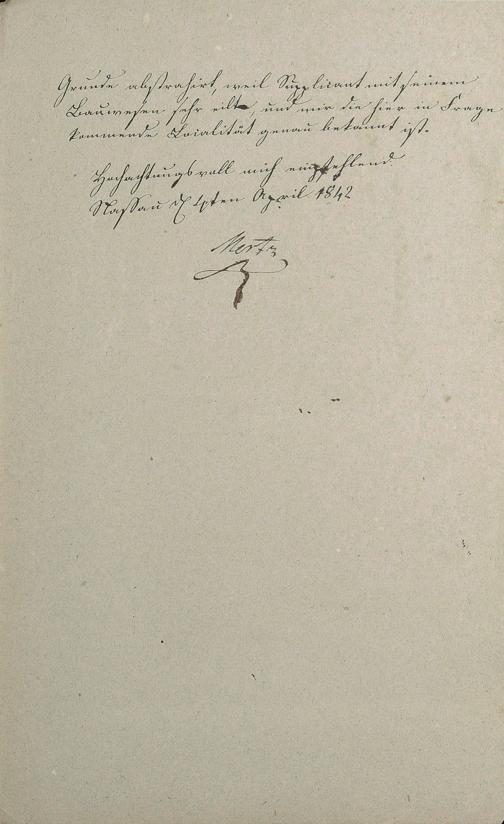 Grunde abstrahirt, weil Supplicant mit seinem
Bauwesen sehr eilt, und mir die hier in Frage
kommende Localität genau bekannt ist.
Hochachtungsvoll mich empfehlend
Nassau d April 1842
Mertz